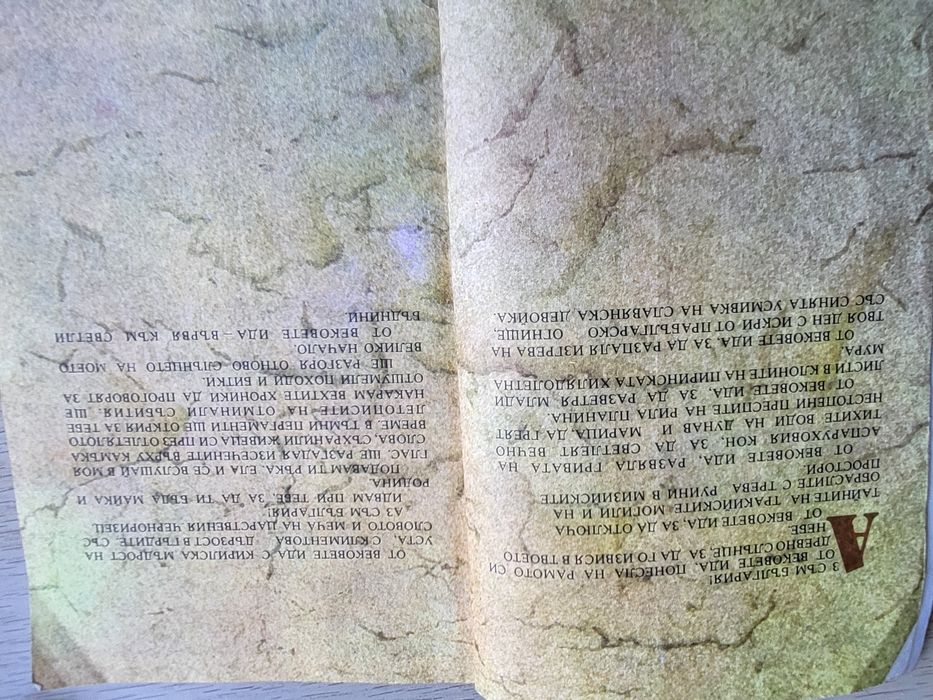 АЗ СЪМ БЪЛГАРИЯ!
ОТ ВЕКОВЕТЕ ИДА, ПОНЕСЛА НА РАМОТО СИ
ДРЕВНО СЛЪНЦЕ ЗА ДА ГО ИЗВИСЯ В ТВОЕТО
НЕБЕ
ОТ ВЕКОВЕТЕ ИДА, ЗА ДА ОТКЛЮЧА
ТАЙНИТЕ НА ТРАКИЙСКИТЕ МОГИЛИ И НА
ОБРАСЛИТЕ С ТРЕВА РУИНИ В МИЗИЙСКИТЕ
ПРОСТОРИ.
ОТ ВЕКОВЕТЕ ИДА, РАЗВЯЛА ГРИВАТА НА
АСПАРУХОВИЯ КОН, ЗА ДА СВЕТЛЕЯТ ВЕЧНО
ТИХИТЕ ВОДИ НА ДУНАВ И МАРИЦА, ДА ГРЕЯТ
НЕСТОПЕНИ ПРЕСПИТЕ НА РИЛА ПЛАНИНА.
ОТ ВЕКОВЕТЕ ИДА, ЗА ДА РАЗВЕТРЯ МЛАДИ
ЛИСТИ В КЛОНИТЕ НА ПИРИНСКАТА ХИЛЯДОЛЕТНА
МУРА.
ОТ ВЕКОВЕТЕ ИДА, ЗА ДА РАЗПАЛЯ ИЗГРЕВА НА
ТВОЯ ДЕН С ИСКРИ ОТ ПРАБЪЛГАРСКО ОГНИЩЕ,
СЪС СИНЯТА УСМИВКА НА СЛАВЯНСКА ДЕВОЙКА.
ОТ ВЕКОВЕТЕ ИДА С КИРИЛСКА МЪДРОСТ НА
УСТА, С КЛИМЕНТОВА ДЪРЗОСТ В ГЪРДИТЕ, СЪС
СЛОВОТО И МЕЧА НА ЦАРСТВЕНИЯ ЧЕРНОРИЗЕЦ.
АЗ СЪМ БЪЛГАРИЯ!
ИДВАМ ПРИ ТЕБЕ, ЗА ДА ТИ БЪДА МАЙКА И
РОДИНА.
ПОДАВАМ ТИ РЪКА. ЕЛА И СЕ ВСЛУШАЙ В МОЯ
ГЛАС. ЩЕ РАЗГАДАЯ ИЗСЕЧЕНИТЕ ВЪРХУ КАМЪКА
СЛОВА, СЪХРАНИЛИ ЖИВЕЦА СИ ПРЕЗ ОТЛЕТЯЛОТО
ВРЕМЕ. В ТЪМНИ ПЕРГАМЕНТИ ЩЕ ОТКРИЯ ЗА ТЕБЕ
ЛЕТОПИСИТЕ НА ОТМИНАЛИ СЪБИТИЯ. ЩЕ
НАКАРАМ ВЕХТИТЕ ХРОНИКИ ДА ПРОГОВОРЯТ ЗА
ОТШУМЕЛИ ПОХОДИ И БИТКИ.
ЩЕ РАЗГОРЯ ОТНОВО СЛЪНЦЕТО НА МОЕТО
ВЕЛИКО НАЧАЛО.
ОТ ВЕКОВЕТЕ ИДА – ВЪРВЯ КЪМ СВЕТЛИ
БЪДНИНИ.